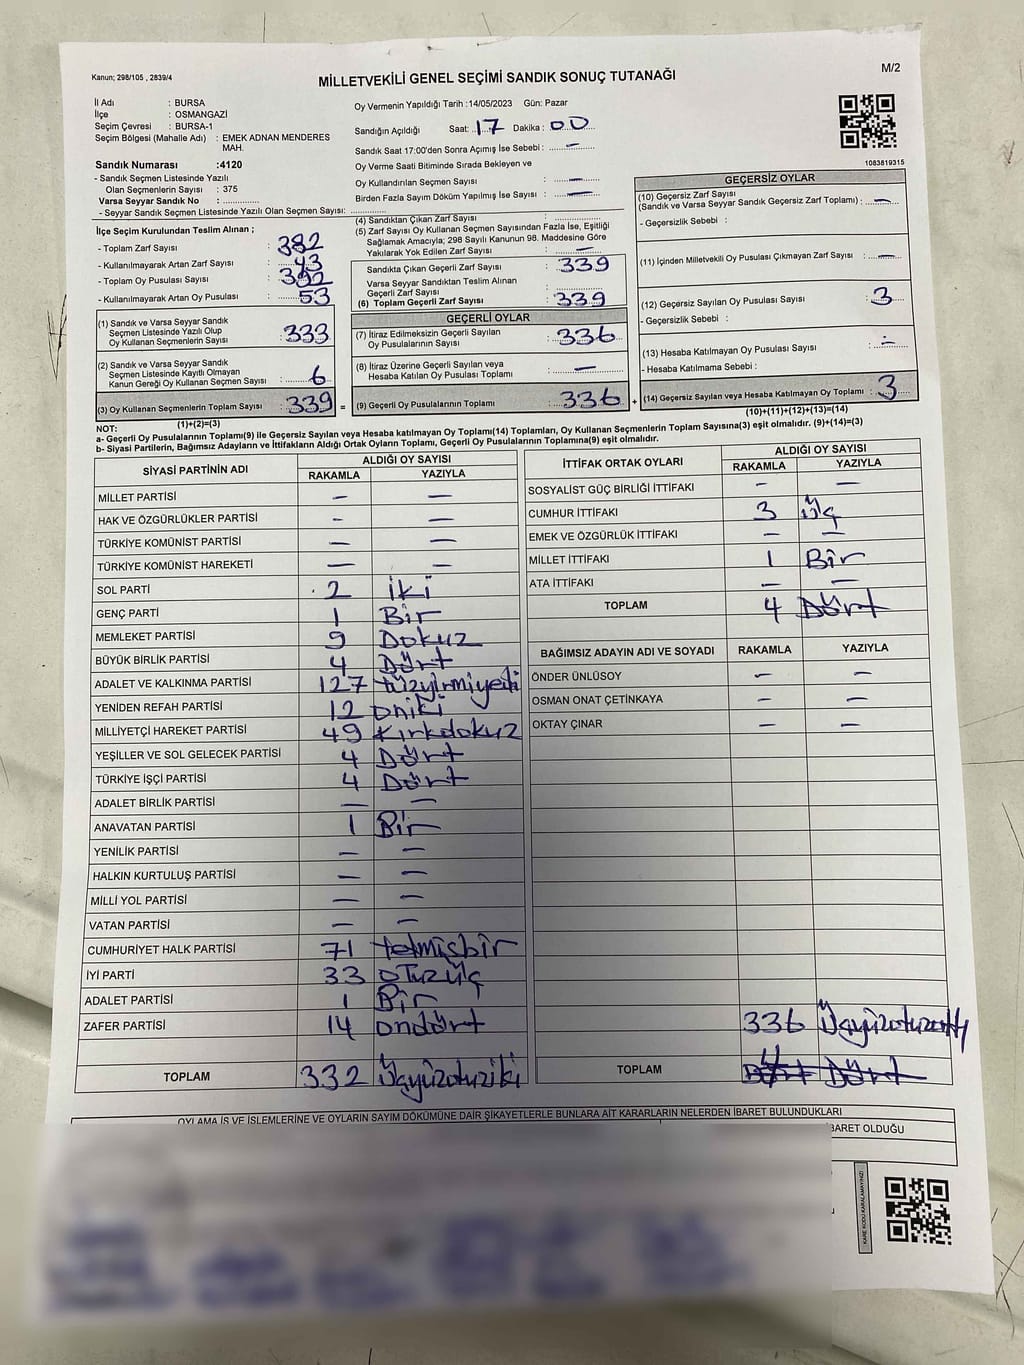 Kanun; 298/105 , 2839/4
MİLLETVEKİLİ GENEL SEÇİMİ SANDIK SONUÇ TUTANAĞI
M/2
İl Adı : BURSA
İlçe : OSMANGAZİ
Seçim Çevresi : BURSA-1
Seçim Bölgesi (Mahalle Adı) : EMEK ADNAN MENDERES MAH.
Sandık Numarası :4120
- Sandık Seçmen Listesinde Yazılı
Olan Seçmenlerin Sayısı : 375
Varsa Seyyar Sandık No :
- Seyyar Sandık Seçmen Listesinde Yazılı Olan Seçmen Sayısı:
Oy Vermenin Yapıldığı Tarih :14/05/2023 Gün: Pazar
Sandığın Açıldığı Saat: 17 Dakika : 00
Sandık Saat 17:00'den Sonra Açımış İse Sebebi : —
Oy Verme Saati Bitiminde Sırada Bekleyen ve
Oy Kullandırılan Seçmen Sayısı : —
Birden Fazla Sayım Döküm Yapılmış İse Sayısı : —
1083819315
İlçe Seçim Kurulundan Teslim Alınan ;
- Toplam Zarf Sayısı : 382
- Kullanılmayarak Artan Zarf Sayısı : 43
- Toplam Oy Pusulası Sayısı : 392
- Kullanılmayarak Artan Oy Pusulası : 53
(1) Sandık ve Varsa Seyyar Sandık
Seçmen Listesinde Yazılı Olup
Oy Kullanan Seçmenlerin Sayısı : 333
(2) Sandık ve Varsa Seyyar Sandık
Seçmen Listesinde Kayıtlı Olmayan
Kanun Gereği Oy Kullanan Seçmen Sayısı : 6
(3) Oy Kullanan Seçmenlerin Toplam Sayısı : 339 =
(1)+(2)=(3)
(4) Sandıktan Çıkan Zarf Sayısı :
(5) Zarf Sayısı Oy Kullanan Seçmen Sayısından Fazla İse, Eşitliği
Sağlamak Amacıyla; 298 Sayılı Kanunun 98. Maddesine Göre
Yakılarak Yok Edilen Zarf Sayısı : —
Sandıkta Çıkan Geçerli Zarf Sayısı : 339
Varsa Seyyar Sandıktan Teslim Alınan
Geçerli Zarf Sayısı :
(6) Toplam Geçerli Zarf Sayısı : 339
GEÇERLİ OYLAR
(7) İtiraz Edilmeksizin Geçerli Sayılan
Oy Pusulalarının Sayısı : 336
(8) İtiraz Üzerine Geçerli Sayılan veya
Hesaba Katılan Oy Pusulası Toplamı : —
(9) Geçerli Oy Pusulalarının Toplamı : 336 +
GEÇERSİZ OYLAR
(10) Geçersiz Zarf Sayısı
(Sandık ve Varsa Seyyar Sandık Geçersiz Zarf Toplamı) : —
- Geçersizlik Sebebi :
(11) İçinden Milletvekili Oy Pusulası Çıkmayan Zarf Sayısı : —
(12) Geçersiz Sayılan Oy Pusulası Sayısı : 3
- Geçersizlik Sebebi :
(13) Hesaba Katılmayan Oy Pusulası Sayısı : —
- Hesaba Katılmama Sebebi :
(14) Geçersiz Sayılan veya Hesaba Katılmayan Oy Toplamı : 3
(10)+(11)+(12)+(13)=(14)
NOT:
a- Geçerli Oy Pusulalarının Toplamı(9) ile Geçersiz Sayılan veya Hesaba katılmayan Oy Toplamı(14) Toplamları, Oy Kullanan Seçmenlerin Toplam Sayısına(3) eşit olmalıdır. (9)+(14)=(3)
b- Siyasi Partilerin, Bağımsız Adayların ve İttifakların Aldığı Ortak Oyların Toplamı, Geçerli Oy Pusulalarının Toplamına(9) eşit olmalıdır.
SİYASİ PARTİNİN ADI ALDIĞI OY SAYISI
RAKAMLA YAZIYLA
MİLLET PARTİSİ — —
HAK VE ÖZGÜRLÜKLER PARTİSİ — —
TÜRKİYE KOMÜNİST PARTİSİ — —
TÜRKİYE KOMÜNİST HAREKETİ — —
SOL PARTİ 2 iki
GENÇ PARTİ 1 Bir
MEMLEKET PARTİSİ 9 Dokuz
BÜYÜK BİRLİK PARTİSİ 4 Dört
ADALET VE KALKINMA PARTİSİ 127 Yüzyirmiyedi
YENİDEN REFAH PARTİSİ 12 Oniki
MİLLİYETÇİ HAREKET PARTİSİ 49 Kırkdokuz
YEŞİLLER VE SOL GELECEK PARTİSİ 4 Dört
TÜRKİYE İŞÇİ PARTİSİ 4 Dört
ADALET BİRLİK PARTİSİ — —
ANAVATAN PARTİSİ 1 Bir
YENİLİK PARTİSİ — —
HALKIN KURTULUŞ PARTİSİ — —
MİLLİ YOL PARTİSİ — —
VATAN PARTİSİ — —
CUMHURİYET HALK PARTİSİ 71 Yetmişbir
İYİ PARTİ 33 Otuzüç
ADALET PARTİSİ 1 Bir
ZAFER PARTİSİ 14 Ondört
TOPLAM 332 Üçyüzotuziki
İTTİFAK ORTAK OYLARI ALDIĞI OY SAYISI
RAKAMLA YAZIYLA
SOSYALİST GÜÇ BİRLİĞİ İTTİFAKI — —
CUMHUR İTTİFAKI 3 Üç
EMEK VE ÖZGÜRLÜK İTTİFAKI — —
MİLLET İTTİFAKI 1 Bir
ATA İTTİFAKI — —
TOPLAM 4 Dört
BAĞIMSIZ ADAYIN ADI VE SOYADI RAKAMLA YAZIYLA
ÖNDER ÜNLÜSOY — —
OSMAN ONAT ÇETİNKAYA — —
OKTAY ÇINAR — —
336 Üçyüzotuzaltı
TOPLAM 4 Dört Dört
OYLAMA İŞ VE İŞLEMLERİNE VE OYLARIN SAYIM DÖKÜMÜNE DAİR ŞİKAYETLERLE BUNLARA AİT KARARLARIN NELERDEN İBARET BULUNDUKLARI
BARET OLDUĞU
KARE KODU KARALAMAYINIZ!